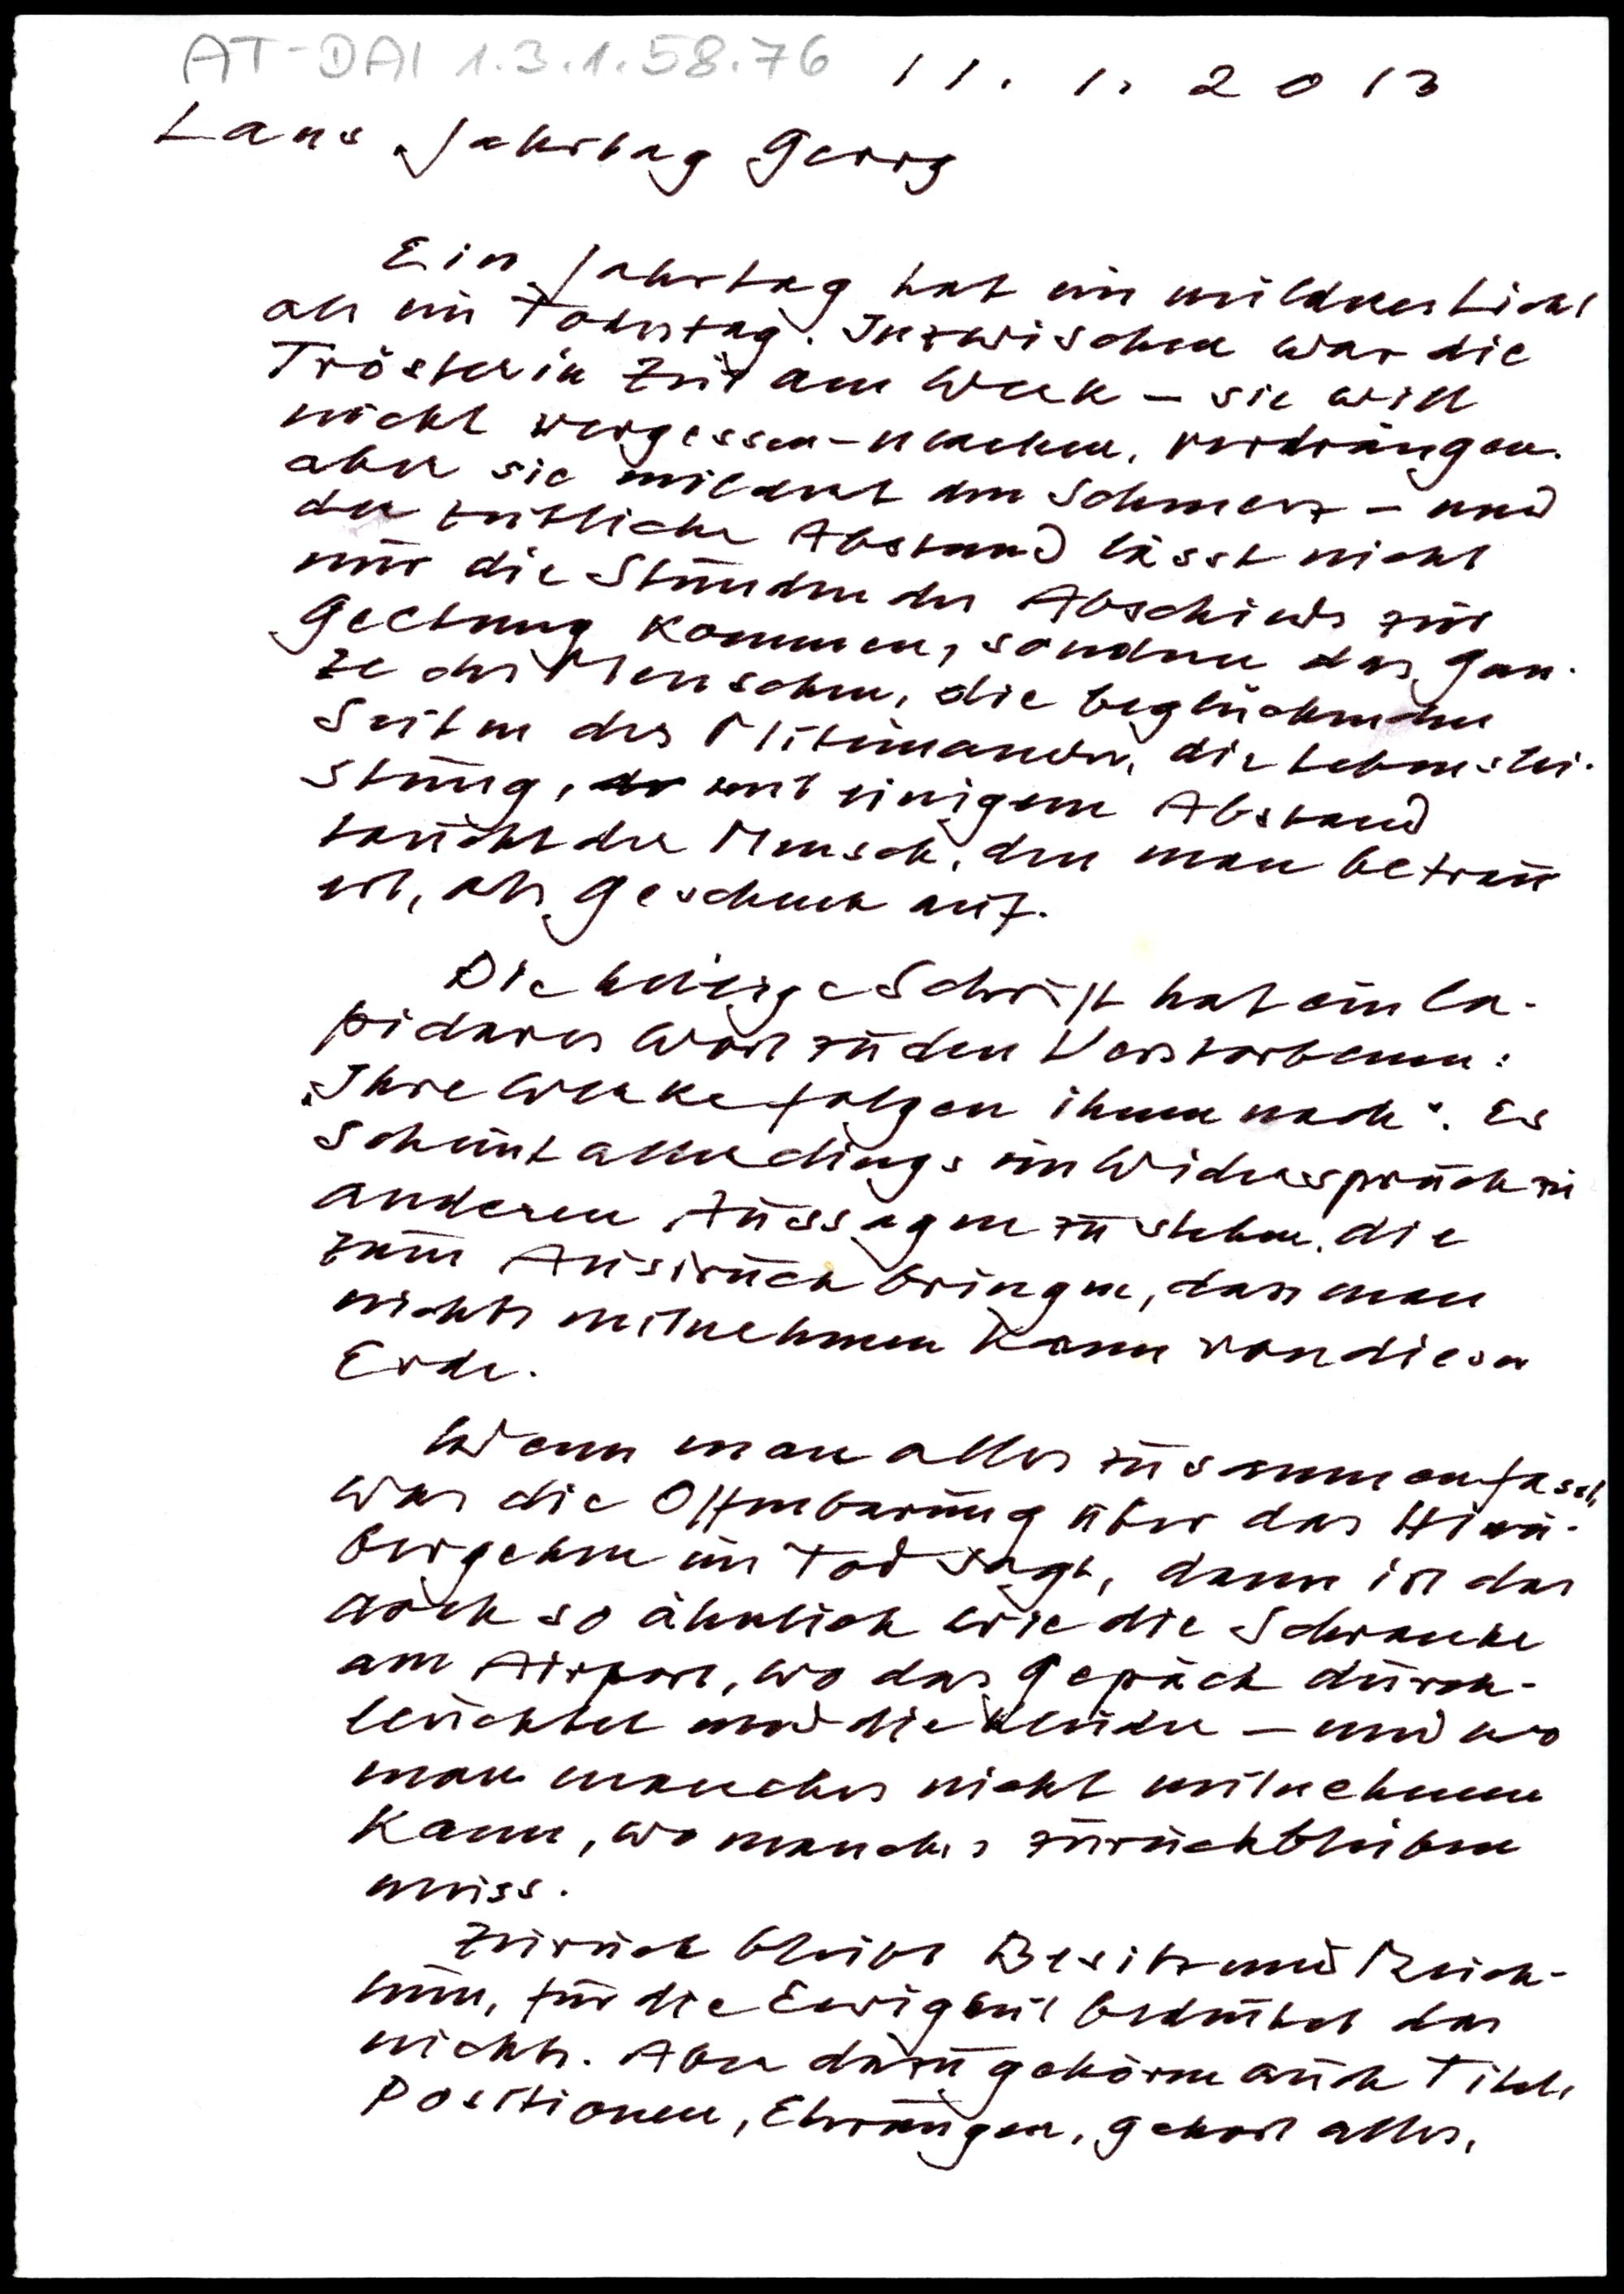 AT-DAI 1.3.1.58.76 11. 1. 2013
Lans Jahrtag Georg
Ein Jahrtag hat ein milderes Licht
als ein Todestag. Inzwischen war die
Trösterin Zeit am Werk – sie will
nicht vergessen-machen, verdrängen.
aber sie mildert den Schmerz – und
der zeitliche Abstand lässt nicht
nur die Stunden des Abschieds zur
Geltung kommen, sondern das Gan-
ze des Menschen, die beglückenden
Seiten des Miteinander, die Lebenslei-
stung, mit einigem Abstand
taucht der Mensch, den man betrau
ert, als Geschenk auf.
Die heilige Schrift hat ein la-
pidares Wort zu den Verstorbenen:
„Ihre Werke folgen ihnen nach“. Es
scheint allerdings im Widerspruch zu
anderen Aussagen zu stehen, die
zum Ausdruck bringen, dass man
nichts mitnehmen kann von dieser
Erde.
Wenn man alles zusammenfasst,
was die Offenbarung über das Hinü-
bergehen im Tod sagt, dann ist das
auch so ähnlich wie die Schranke
am Airport, wo das Gepäck durch-
leuchtet und die Kleider – und wo
man manches nicht mitnehmen
kann, wo manches zurückbleiben
muss.
Zurück bleibt Besitz und Reich-
tum, für die Ewigkeit bedeutet das
nichts. Aber dazu gehören auch Titel,
Positionen, Ehrungen, gehört alles,